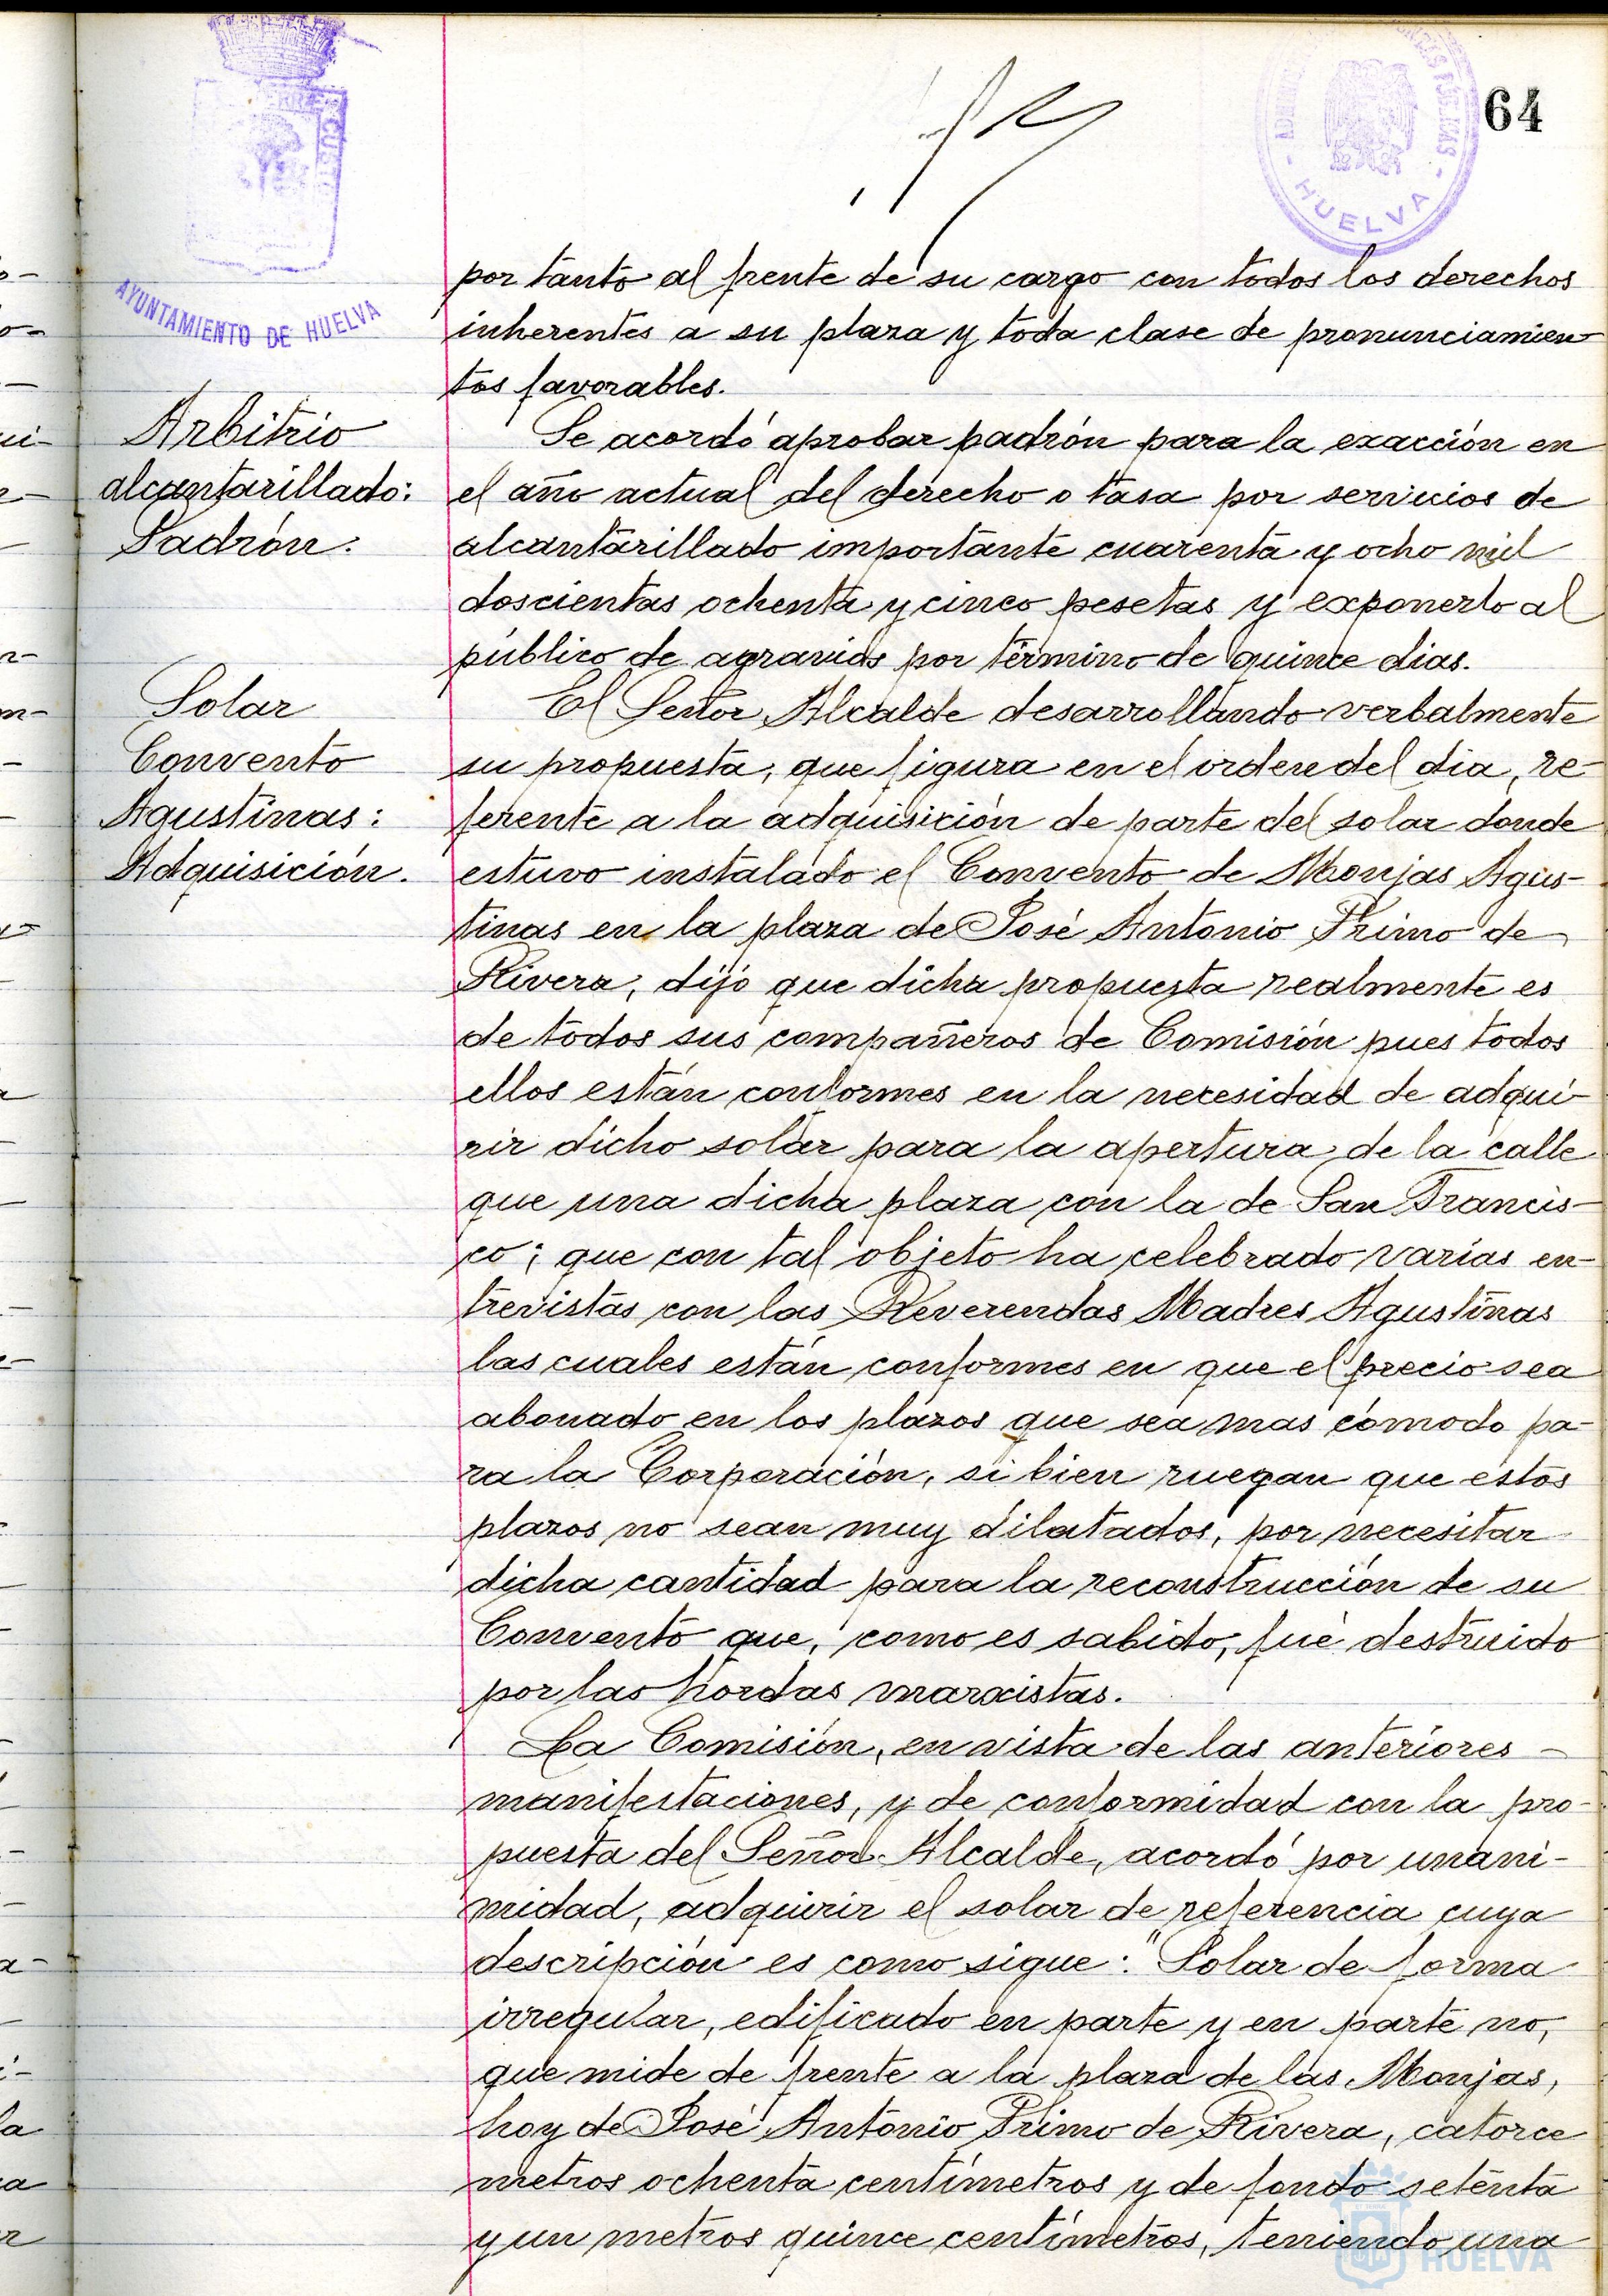 64
HUELVA
AYUNTAMIENTO DE HUELVA
por tanto al frente de su cargo con todos los derechos
inherentes a su plaza y toda clase de pronunciamien-
tos favorables.
Arbitrio
alcantarillado:
Padrón.
Se acordó aprobar padrón para la exacción en
el año actual del derecho o tasa por servicios de
alcantarillado importante cuarenta y ocho mil
doscientas ochenta y cinco pesetas y exponerlo al
público de agravios por término de quince dias.
Solar
Convento
Agustinas:
Adquisición.
El Señor Alcalde desarrollando verbalmente
su propuesta, que figura en el orden del dia, re-
ferente a la adquisición de parte del solar donde
estuvo instalado el Convento de Monjas Agus-
tinas en la plaza de José Antonio Primo de
Rivera, dijo que dicha propuesta realmente es
de todos sus compañeros de Comisión pues todos
ellos están conformes en la necesidad de adqui-
rir dicho solar para la apertura de la calle
que una dicha plaza con la de San Francis-
co; que con tal objeto ha celebrado varias en-
trevistas con las Reverendas Madres Agustinas
las cuales están conformes en que el precio sea
abonado en los plazos que sea mas cómodo pa-
ra la Corporación, si bien ruegan que estos
plazos no sean muy dilatados, por necesitar
dicha cantidad para la reconstrucción de su
Convento que, como es sabido, fué destruido
por las hordas marxistas.
La Comisión, en vista de las anteriores -
manifestaciones, y de conformidad con la pro-
puesta del Señor Alcalde, acordó por unani-
midad, adquirir el solar de referencia cuya
descripción es como sigue: "Solar de forma
irregular, edificado en parte y en parte no,
que mide de frente a la plaza de las Monjas,
hoy de José Antonio Primo de Rivera, catorce
metros ochenta centímetros y de fondo setenta
y un metros quince centímetros, teniendo una
HUELVA